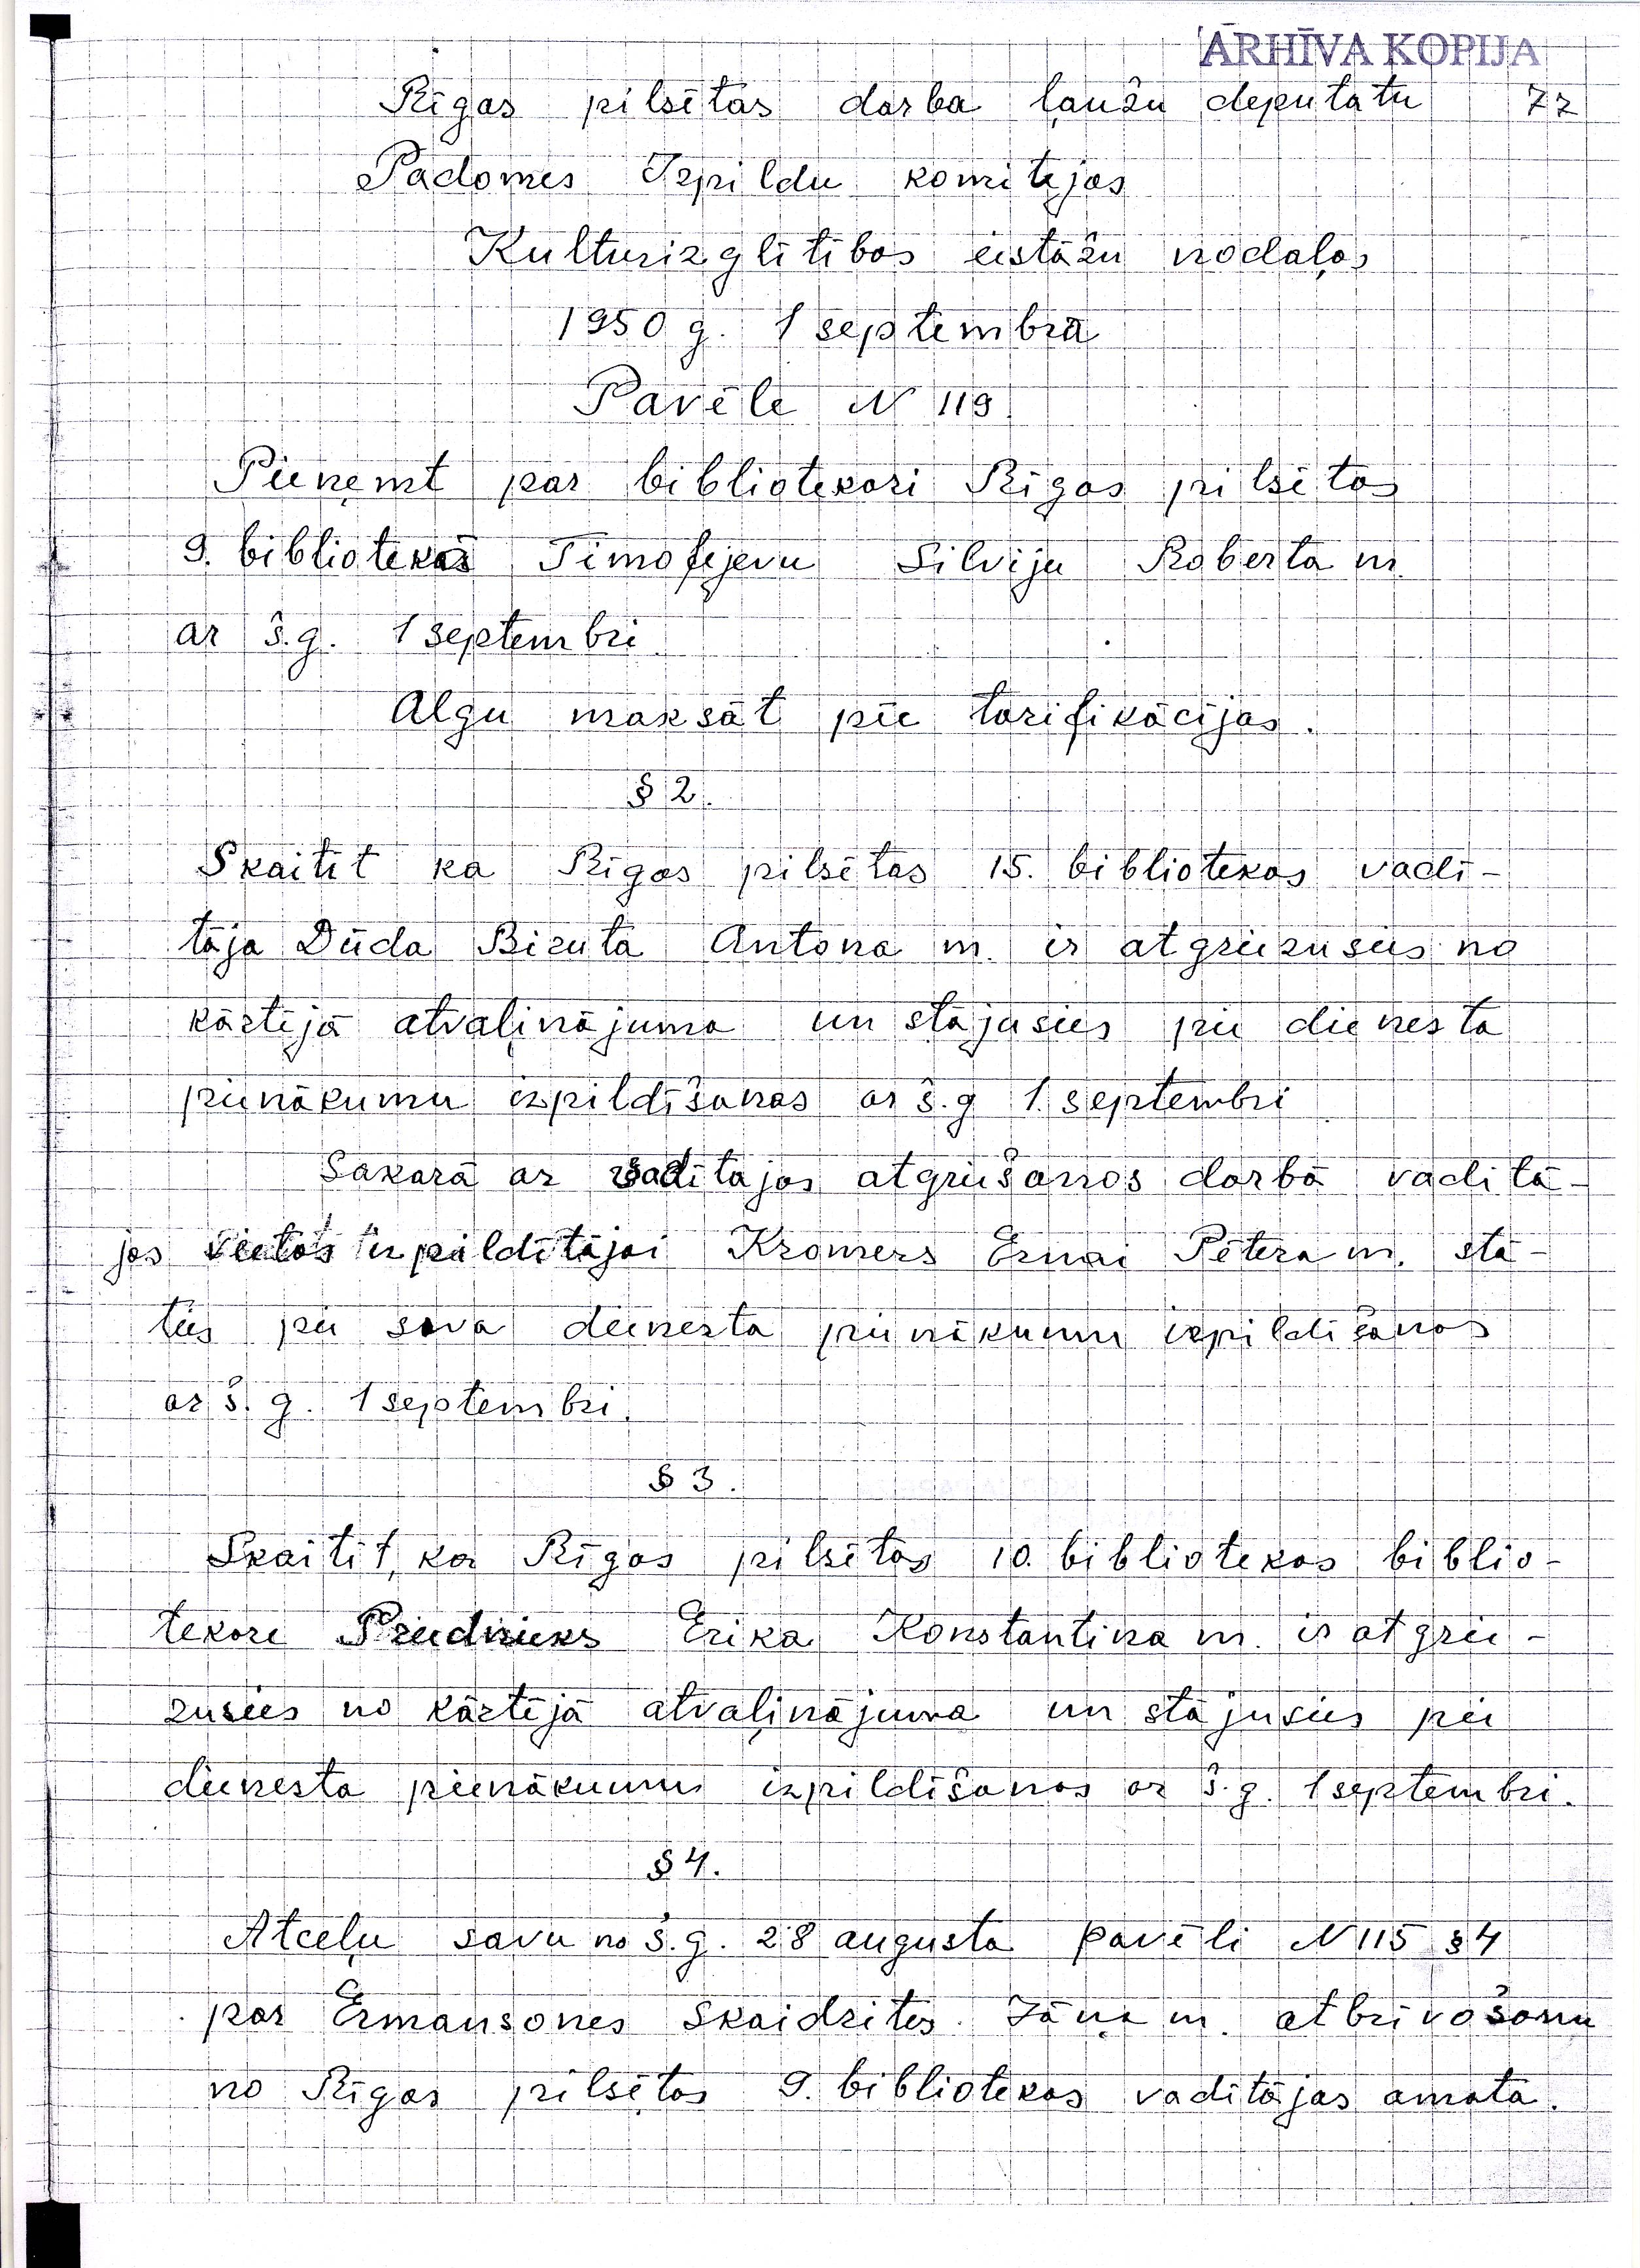 ĀRHĪVA KOPIJA
Rīgas pilsētas darba ļaužu deputatu 72
Padomes Izpildu komitejas
Kulturizglītības iestāžu nodaļas
1950 g. 1 septembrā
Pavēle N 119.
Pieņemt par bibliotekari Rīgas pilsētas
9. bibliotekā Timofejevu Silviju Roberta m.
ar š.g. 1 septembri.
Algu maksāt pēc tarifikācijas.
§ 2.
Skaitīt ka Rīgas pilsētas 15. bibliotekas vadī-
tāja Dūda Biruta Antona m. ir atgriezusies no
kārtējā atvaļinājuma un stājusies pie dienesta
pienākumu izpildīšanas ar š.g 1. septembri
Sakarā ar vadītājas atgriešanos darbā vadītā-
jas vietas izpildītājai Kromers Ernai Pētera m. stā-
ties pie sava dienesta pienākumu izpildīšanas
ar š.g. 1 septembri.
§ 3.
Skaitīt, ka Rīgas pilsētas 10. bibliotekas biblio-
tekare Priednieks Erika Konstantina m. ir atgrie-
zusies no kārtējā atvaļinājuma un stājusies pie
dienesta pienākumu izpildīšanas ar š.g. 1 septembri.
§ 4.
Atceļu savu no š.g. 28 augusta pavēli N 115 § 4
par Ermansones Skaidrītes Jāņa m. atbrīvošanu
no Rīgas pilsētas 9. bibliotekas vadītājas amata.